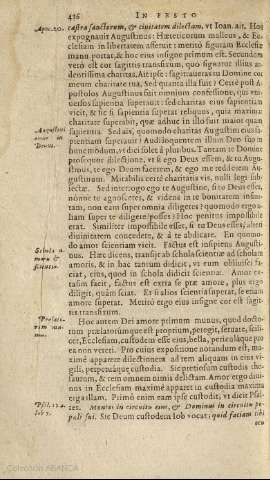 426 IN FESTO
Apoc. 20. castra sanctorum, & ciuitatem dilectam, vt Ioan. ait. Hoc
expugnauit Augustinus: Hæreticorum malleus, & Ec-
clesiam in libertatem asseruit: meritò figuram Ecclesiæ
manu portat, & hoc eius insigne primum est. Secundum
verò est cor sagittis transfixum, quò signatur illius ar-
dentissima charitas, Ait ipse: sagittaueras tu Domine cor
meum charitate tua. Sed quanta illa fuit? Certè post A-
postolos Augustinus fuit omnium consessione, qui vni-
uersos sapientia superauit: sed charitas eius sapientiam
vicit, & sic si sapientia superat reliquos, quia maxima
charitate superabit, quæ adhuc in illo fuit maior quam
sapientia. Sed ais, quomodo charitas Augustini eius sa-
pientiam superauit? Audi loquentem illum Deo
hunc modum, vt dici solet à pluribus. Tantam te Domine
prosequor dilectione, vt si ego Deus essem, & tu Augu-
stinus, te ego Deum facerem, & ego me redderem Au-
gustinum. Mirabilis certè charitatis vis, nulli legi sub-
iectæ. Sed interrogo ego te Augustine, si tu Deus esses,
nónne te agnosceres, & videns in te bonitatem infini-
tam, non eam super omnia diligeres? quomodo ergo a-
lium super te diligere posses? Hoc penitus impossibile
erat. Similiter impossibile esset, si tu Deus esses, alteri
diuinitatem concedere, & à te abdicare. En quomo-
do amor scientiam vicit. Factus est insipiens Augusti-
nus. Hæc dicens, transiuit ab schola scientiæ ad scholam
amoris, & in hac tantum didicit, vt eum obliuisci fa-
ciat, eius, quod in schola didicit scientiæ. Amor ex-
tasim facit, factus est extra se præ amore, plus ergo
diligit, quàm sciat. Et si alios scientia superat, se etiam
amore superat. Meritò ergo eius insigne cor est sagit-
tis transfixum.
Hoc autem Dei amore primum munus, quod docto-
rum prælatorúmque est proprium, peregit, seruare, scili-
cet, Ecclesiam, custodem esse eius, bella, periculáque pro
ea non vereri. Pro cuius expositione notandum est, ma-
ximè apparere dilectionem ad rem aliquam in eius vi-
gili, perpetuáque custodia. Sic pretiosum custodis the-
saurum, & rem omnem nimis delictam. Amor ergo diui-
nus in Ecclesiam maximè apparet in custodia maxima
erga illam. Primò enim eam ipse custodit; vt dicit Psal-
tes. Montes in circuitu eius, & Dominus in circuitu po-
puli sui. Sic Deum custodem Iob vocat; quid faciam tibi
Augustini
amor in
Deum.
Schola a-
moris &
scientiæ.
Psal. 124.
Iob 7.
Colección ABANCA